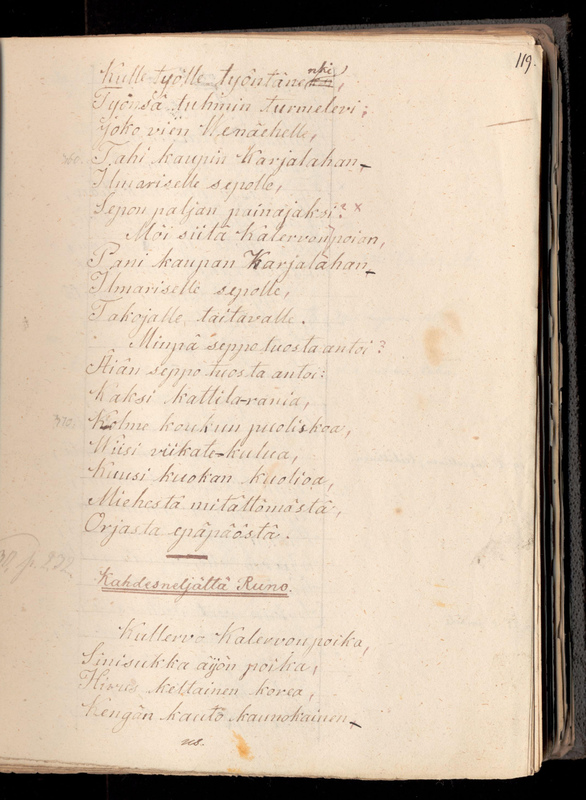 119.
Kulle työlle työntänenki,
Työnsä tuhmin turmelevi;
Joko vien Wenäehelle,
Tahi kaupin Karjalahan
Ilmariselle sepolle,
Sepon paljan painajaksi? x
Möi siitä Kalervon poian,
Pani kaupan Karjalahan
Ilmariselle sepolle,
Takojalle taitavalle.
Minpä seppo tuosta antoi?
Äiän seppo tuosta antoi:
Kaksi kattila-rania,
Kolme koukun puoliskoa,
Wiisi viikate-kulua,
Kuusi kuokan kuolioa,
Miehestä mitättömästä,
Orjasta epäpäöstä.
Kahdesneljättä Runo.
Kullervo Kalervon poika,
Sinisukka äijön poika,
Hivus keltainen korea,
Kengän kauto kaunokainen